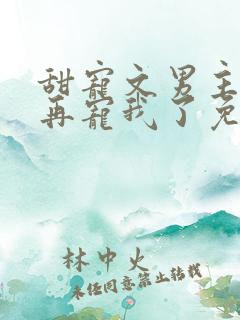 甜宠文男主
再宠我了免
林中火
未经同意禁止转载